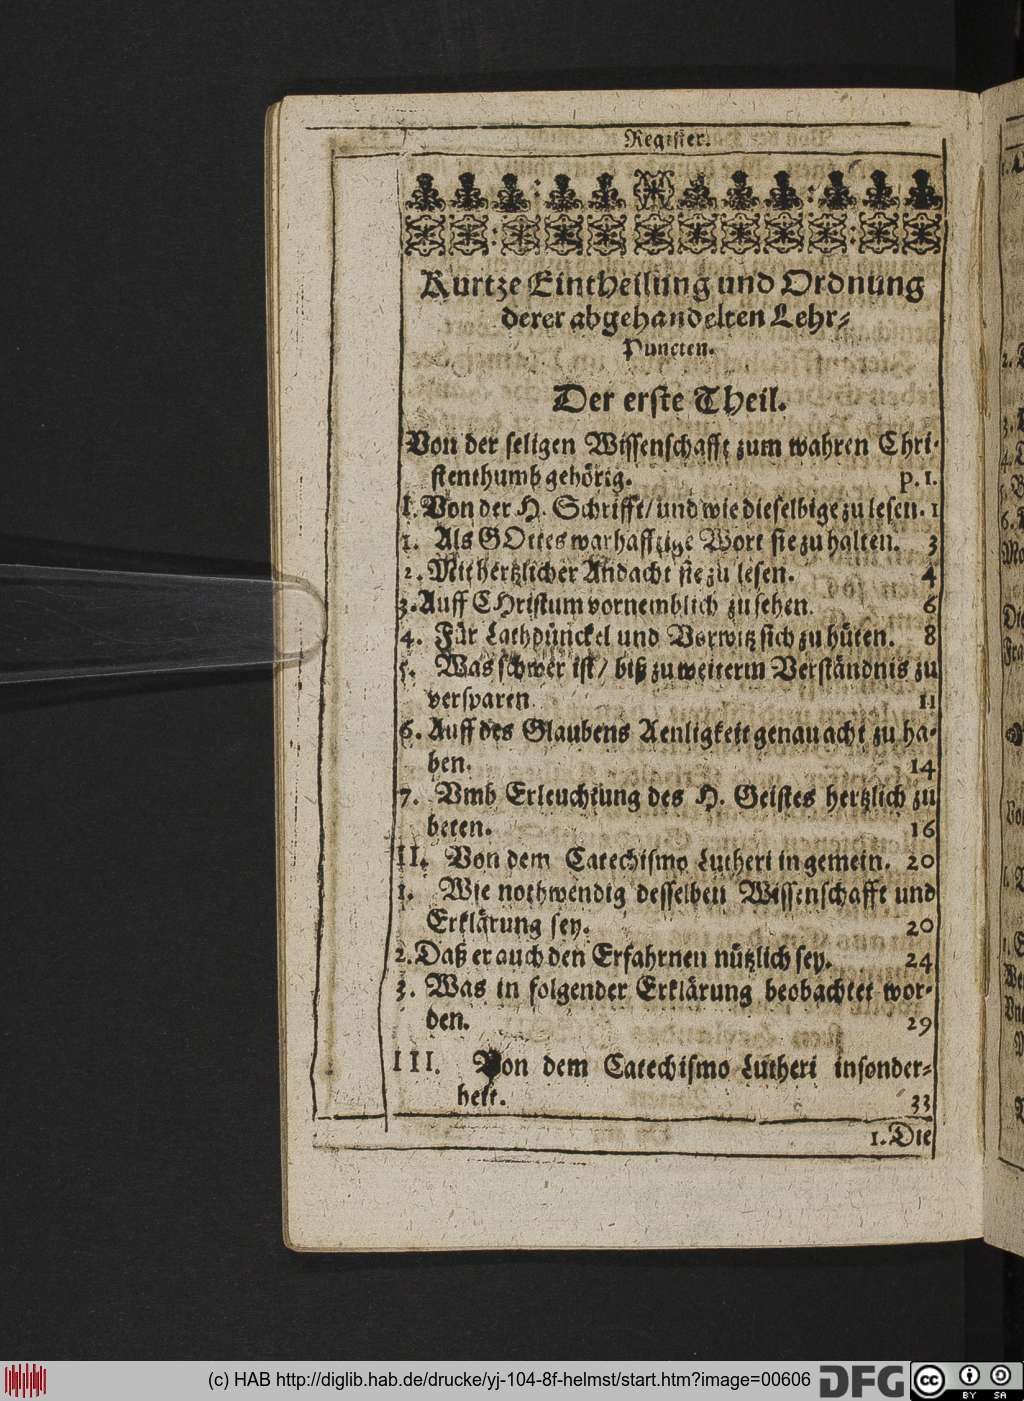 Register.
Kurtze Eintheilung und Ordnung
derer abgehandelten Lehr-
Puncten.
Der erste Theil.
Von der seligen Wissenschafft zum wahren Chri-
stenthumb gehörig. p. 1.
I. Von der H. Schrifft/ und wie dieselbige zu lesen. 1
1. Als GOttes warhafftige Wort sie zu halten. 3
2. Mit hertzlicher Andacht sie zu lesen. 4
3. Auff CHristum vornemblich zu sehen. 6
4. Für Lathdünckel und Vorwitz sich zu hüten. 8
5. Was schwer ist/ biß zu weiterm Verständnis zu
versparen 11
6. Auff des Glaubens Aenligkeit genau acht zu ha-
ben. 14
7. Vmb Erleuchtung des H. Geistes hertzlich zu
beten. 16
II. Von dem Catechismo Lutheri in gemein. 20
1. Wie nothwendig desselben Wissenschafft und
Erklärung sey. 20
2. Daß er auch den Erfahrnen nützlich sey. 24
3. Was in folgender Erklärung beobachtet wor-
den. 29
III. Von dem Catechismo Lutheri insonder-
heit. 33
1. Die
(c) HAB http://diglib.hab.de/drucke/yj-104-8f-helmst/start.htm?image=00606
DFG
cc BY SA